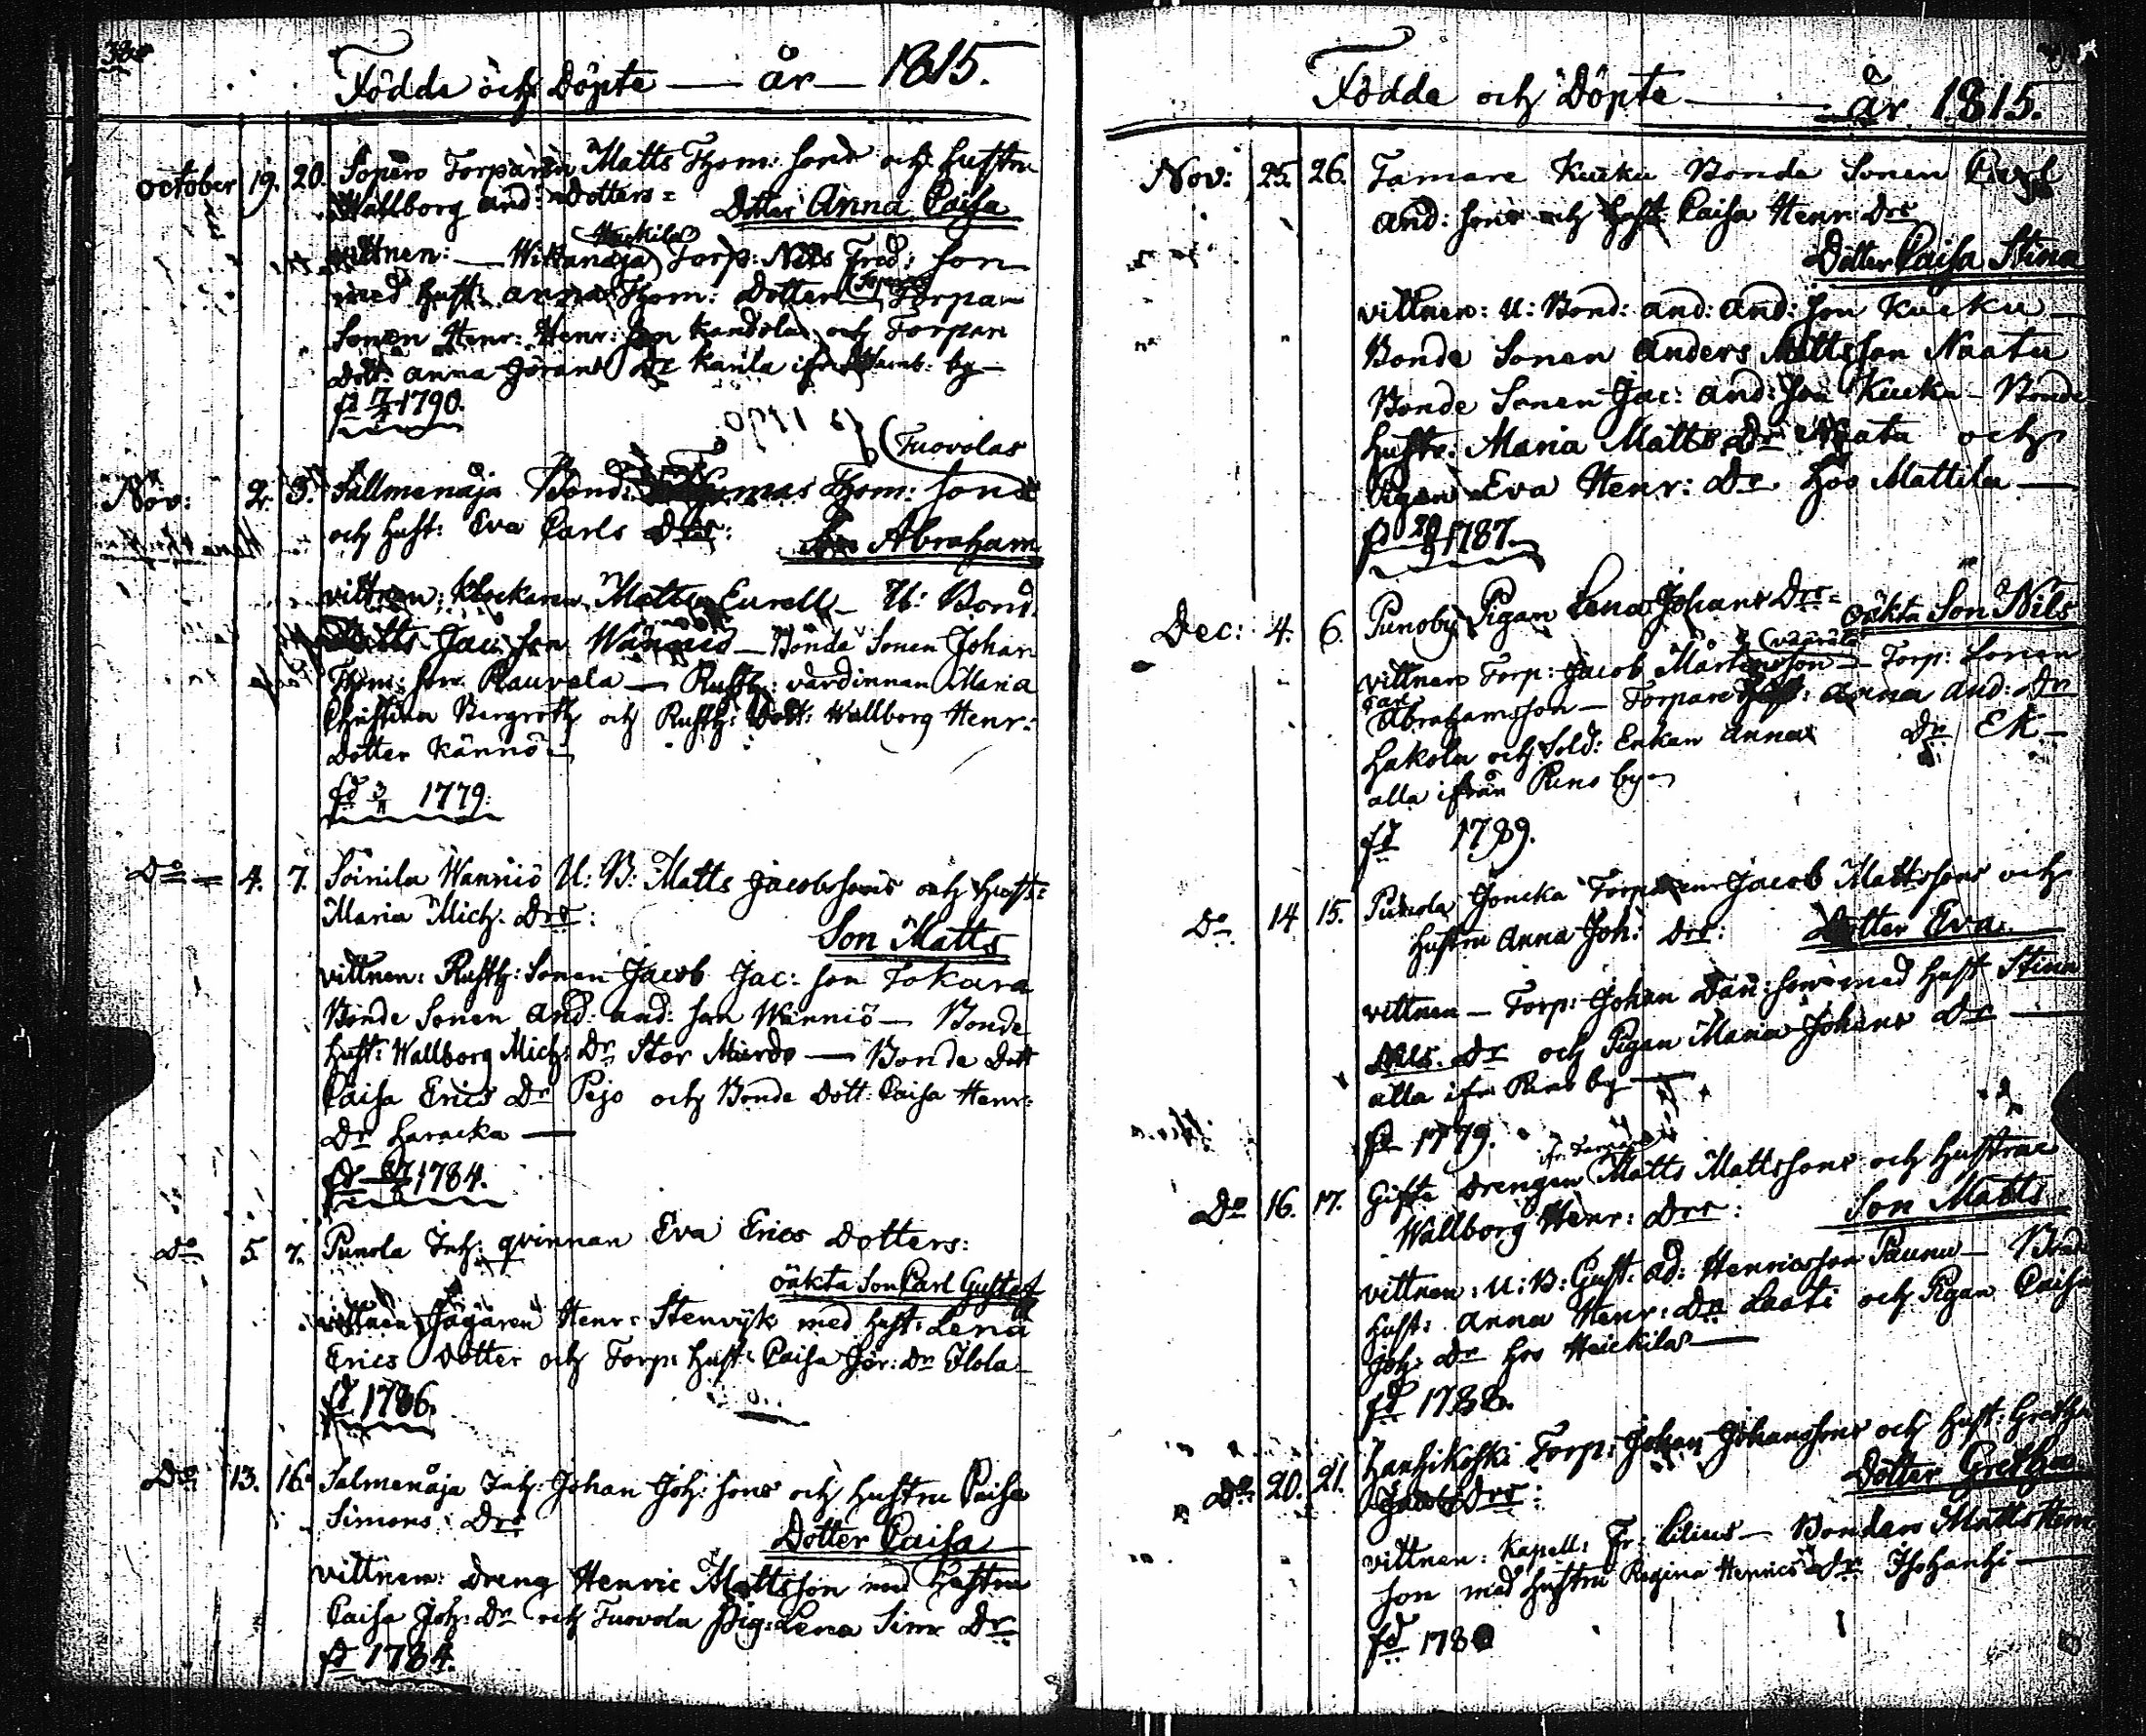 Födde och Döpte — år — 1815.
October 19. 20. Sopero Torparen Matts Thom: sons och hustru
Wallborg And: Dotters = Dotter Anna Caisa
vittnen: — Torp: Nils Fred: son
Heickilä
med hust: Anna Thom: Dotter Torpare
Sonen Henr: Henr: son Kandola och Torpare
Dott: Anna Görans Dr Kaula ifr by —
fd 1790.
Tuovolas
Nov: 2. 3. Sallmenåja Bond: Thom: sons
och hust: Eva Carls Drs: Son Abraham
vittnen; Klockaren Matts Eurell — U: Bond.
Matts Jac: son Wänniö — Bonde Sonen Johan
Thom: son Rauvola — Rusth: värdinnan Maria
Christina Bergroth och Rusth: Dott: Wallborg Henr:
Dotter Kännö —
fd 3/11 1779.
Do 4. 7. Soinila Wänniö U: B: Matts Jacobssons och Hust:
Maria Mich: Drs:
Son Matts
vittnen: Rusth: Sonen Jacob Jac: son Tokara
Bonde Sonen And: And: son Wänniö — Bonde
Hust: Wallborg Mich: Dr Stor Murdo — Bonde Dott
Caisa Erics Dr Pejo och Bonde Dott: Caisa Henr:
Dr Haracka —
fd 1784.
Do 5 7. Punola Inh: qvinnan Eva Erics Dotters:
oäkta Son Carl Gustaf
vittnen Jägaren Henr: Stenvijk med hust: Lena
Erics Dotter och Torp: Hust: Caisa Jör: Dr Ilola —
fd 1786.
Do 13. 16. Salmenåja Inh: Johan Joh: sons och hustru Caisa
Simons Drs
Dotter Caisa
vittnen: Dreng Henric Mattsson med Hustru
Caisa Joh: Dr och Tuovola Pig: Lena Sim: Dr
fd 1784.
Födde och Döpte — år 1815.
Nov: 25. 26. Tamare Kucku Bonde Sonen Carl
And: sons och Hust: Caisa Henr: Drs
Dotter Caisa Stina
vittnen: U: Bond: And: And: son Kucku —
Bonde Sonen Anders Mattsson Naatu
Bonde Sonen Jac: And: son Kucku — Bonde
hustr: Maria Matts Dr Naatu och
Pigan Eva Henr: Dr hos Mattila —
fd 1787.
Dec: 4. 6. Punoby Pigan Lena Johans Drs = oäkta Son Nils
vittnen Torp: Jacob Mårtensson — Torp: Sonen
Carl
Abrahamsson — Torpare Hust: Anna And: Dr
Hakola och Sold: Enkan Anna Dr Ek —
alla ifrån Puno by —
fd 1789.
Do 14 15. Punola Joncka Torparen Jacob Mattssons och
hustru Anna Joh: Drs: Dotter Eva
vittnen — Torp: Johan Dan: son med hust Stina
Nils Dr och Pigan Maria Johans Dr —
alla ifr Puno by —
fd 1779.
Do 16. 17. Gifte Drengen Matts Mattssons och hustrue
Wallborg Henr: Drs: Son Matts
vittnen: U: B: Gust: Ad: Henricsson Paunu — Bonde
Hust: Anna Henr: Dr Laati och Pigan Caisa
Joh: Dr hos Heickilä —
fd 1788.
Do 20. 21. Hanhikoski Torp: Johan Johanssons och Hust: Gretha
Jacobs Drs: Dotter Gretha
vittnen: Kapell: Fr: Lilius — Bonden Matts Henr:
son med hustru Regina Henrics Dr Isohanhi —
fd 178